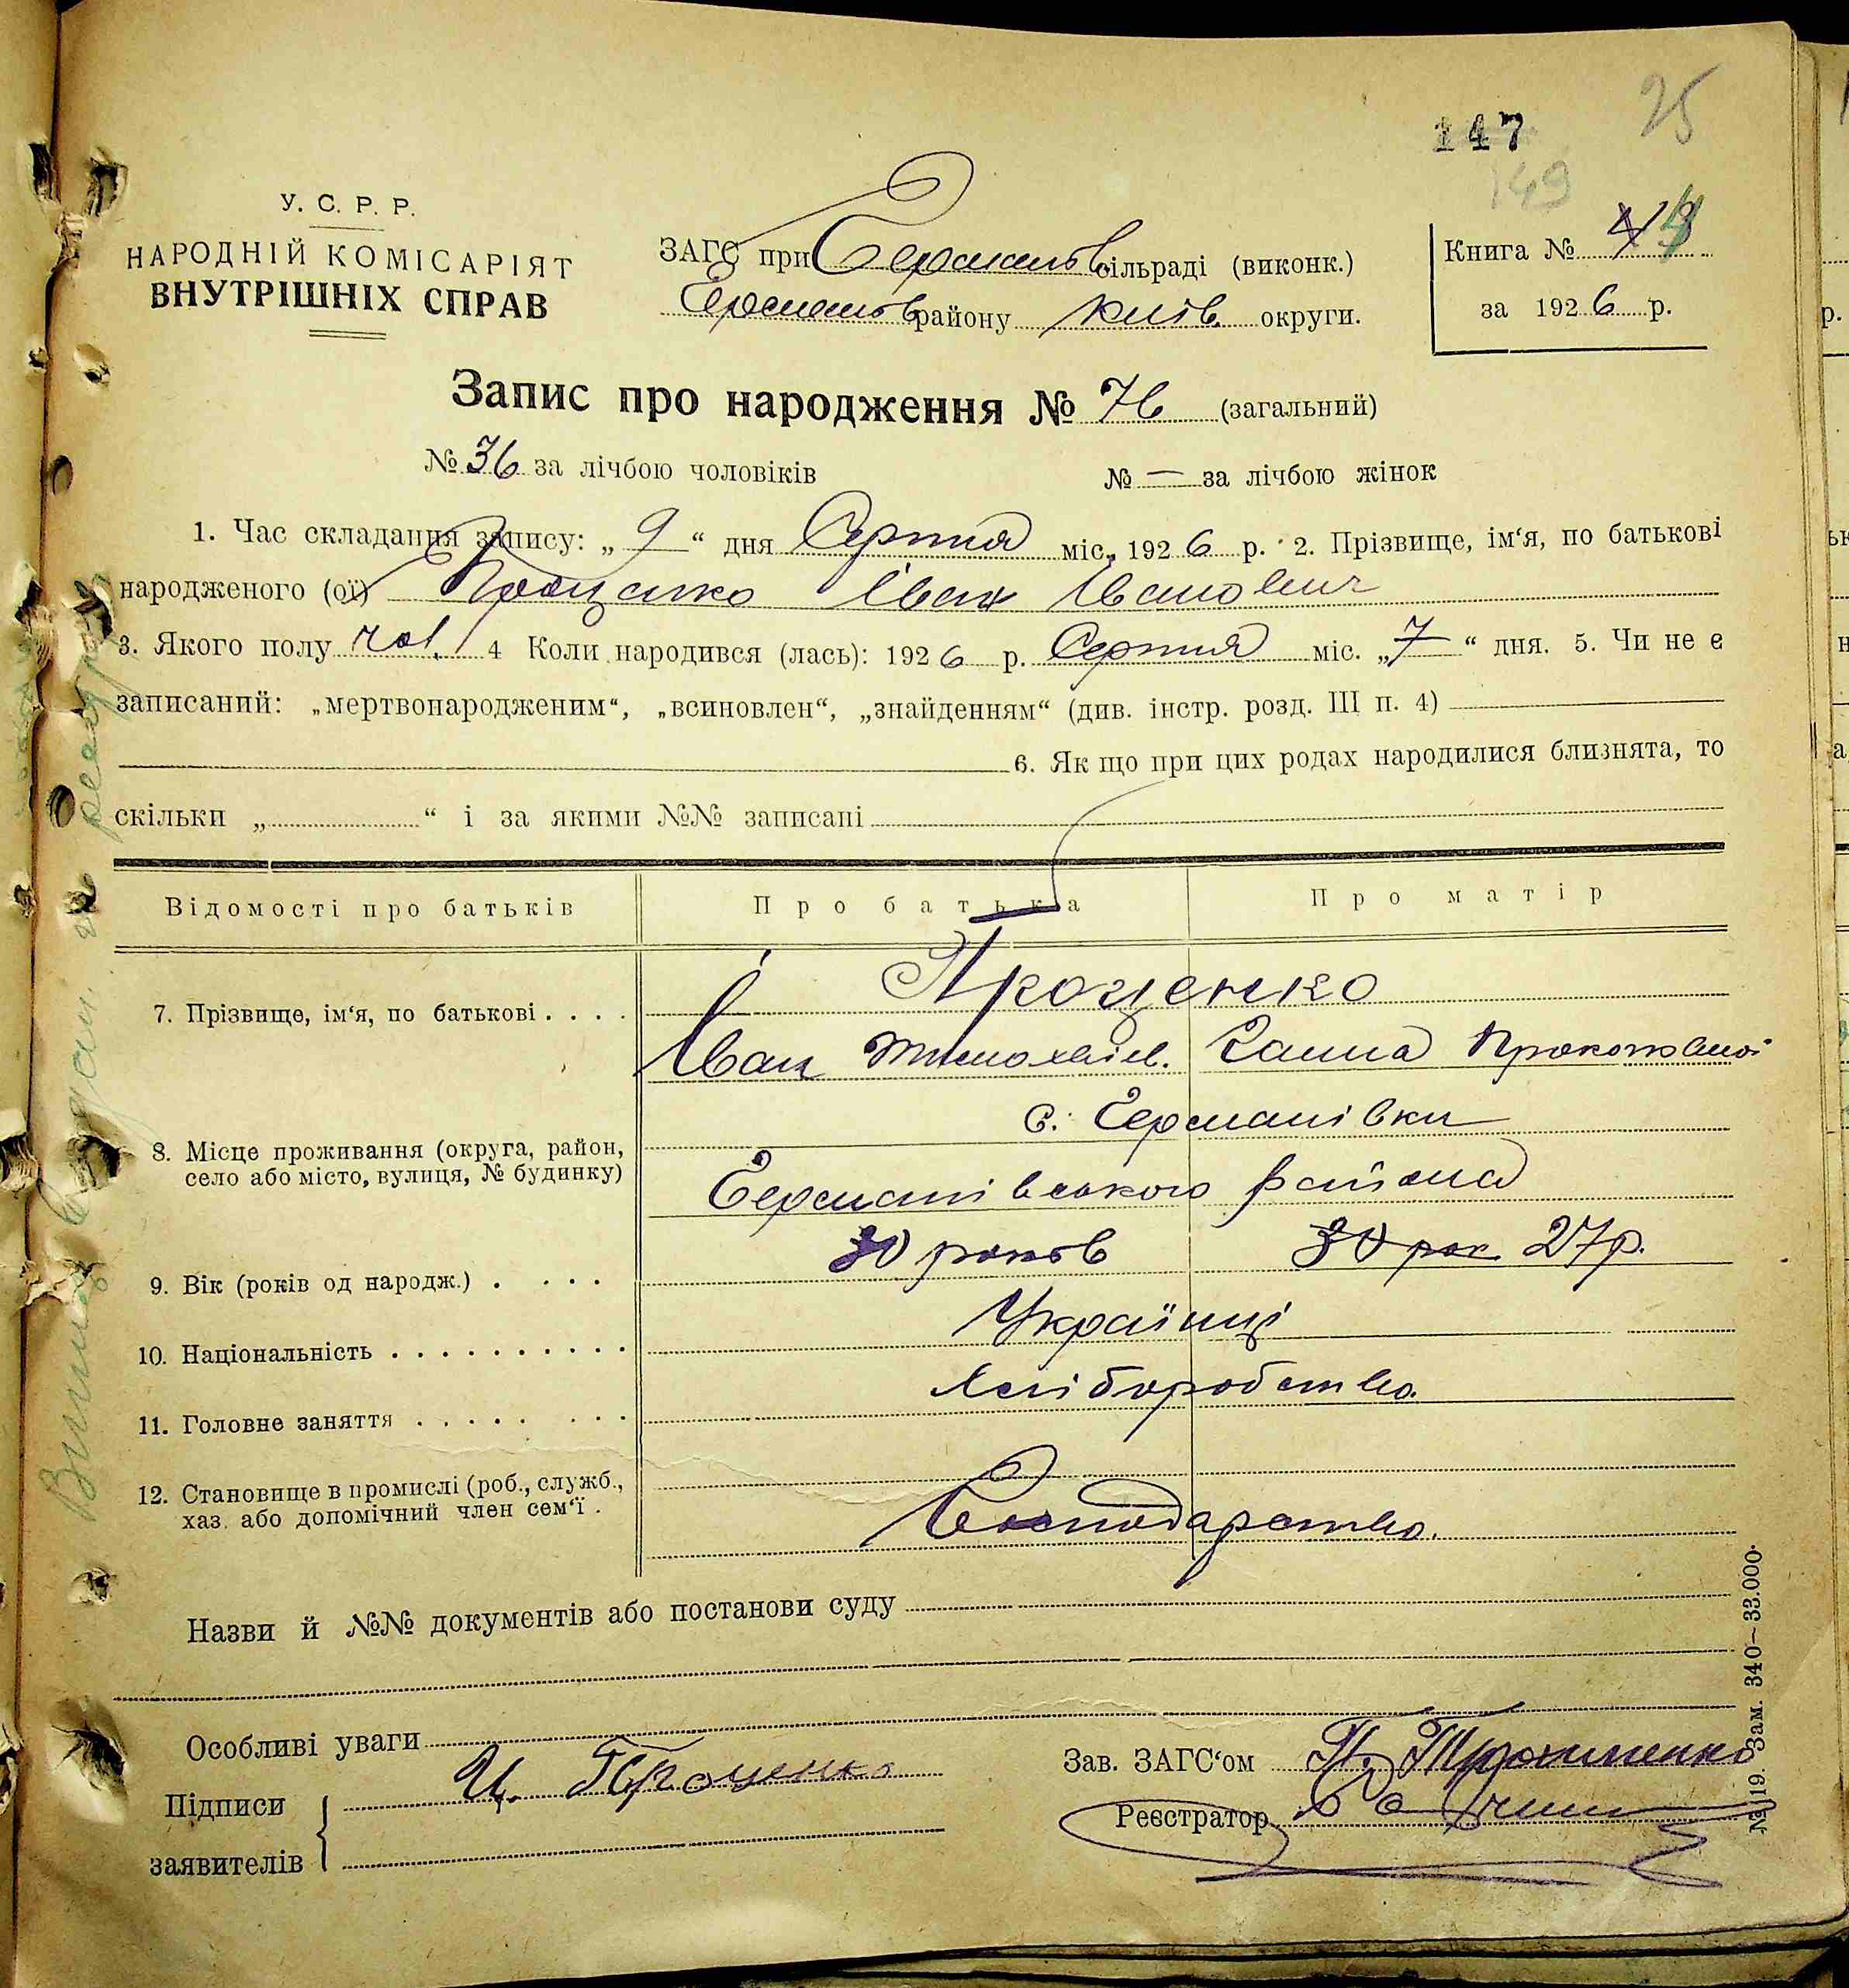 25
147
149
У. С. Р. Р.
НАРОДНІЙ КОМІСАРІЯТ
ВНУТРІШНІХ СПРАВ
ЗАГС при Германів. сільраді (виконк.)
Германів району Київ. округи.
Книга №
за 1926 р.
Запис про народження № 76 (загальний)
№ 36 за лічбою чоловіків № — за лічбою жінок
1. Час складання запису: „ 9 “ дня Серпня міс. 1926 р. 2. Прізвище, ім‘я, по батькові
народженого (ої) Проценко Іван Іванович
3. Якого полу чол. 4 Коли народився (лась): 1926 р. Серпня міс. „ 7 “ дня. 5. Чи не є
записаний: „мертвонародженим“, „всиновлен“, „знайденням“ (див. інстр. розд. III п. 4)
6. Як що при цих родах народилися близнята, то
скільки „ “ і за якими №№ записані
Відомості про батьків Про батька Про матір
Проценко
7. Прізвище, ім‘я, по батькові . . . .
Іван Тимохвіїв. Ганна Прокоповна
с. Германівки
8. Місце проживання (округа, район,
село або місто, вулиця, № будинку)
Германівського района
9. Вік (років од народж.) . . . . 30 років 30 рок 27р.
10. Національність . . . . . . . . . . Українці
11. Головне заняття . . . . . . . . Хліборобство.
12. Становище в промислі (роб., служб.,
хаз. або допомічний член сем‘ї .
Господарство.
Назви й №№ документів або постанови суду
Особливі уваги
Підписи
заявителів
И. Проценко
Зав. ЗАГС‘ом
Реєстратор
№ 19. Зам. 340—33.000.